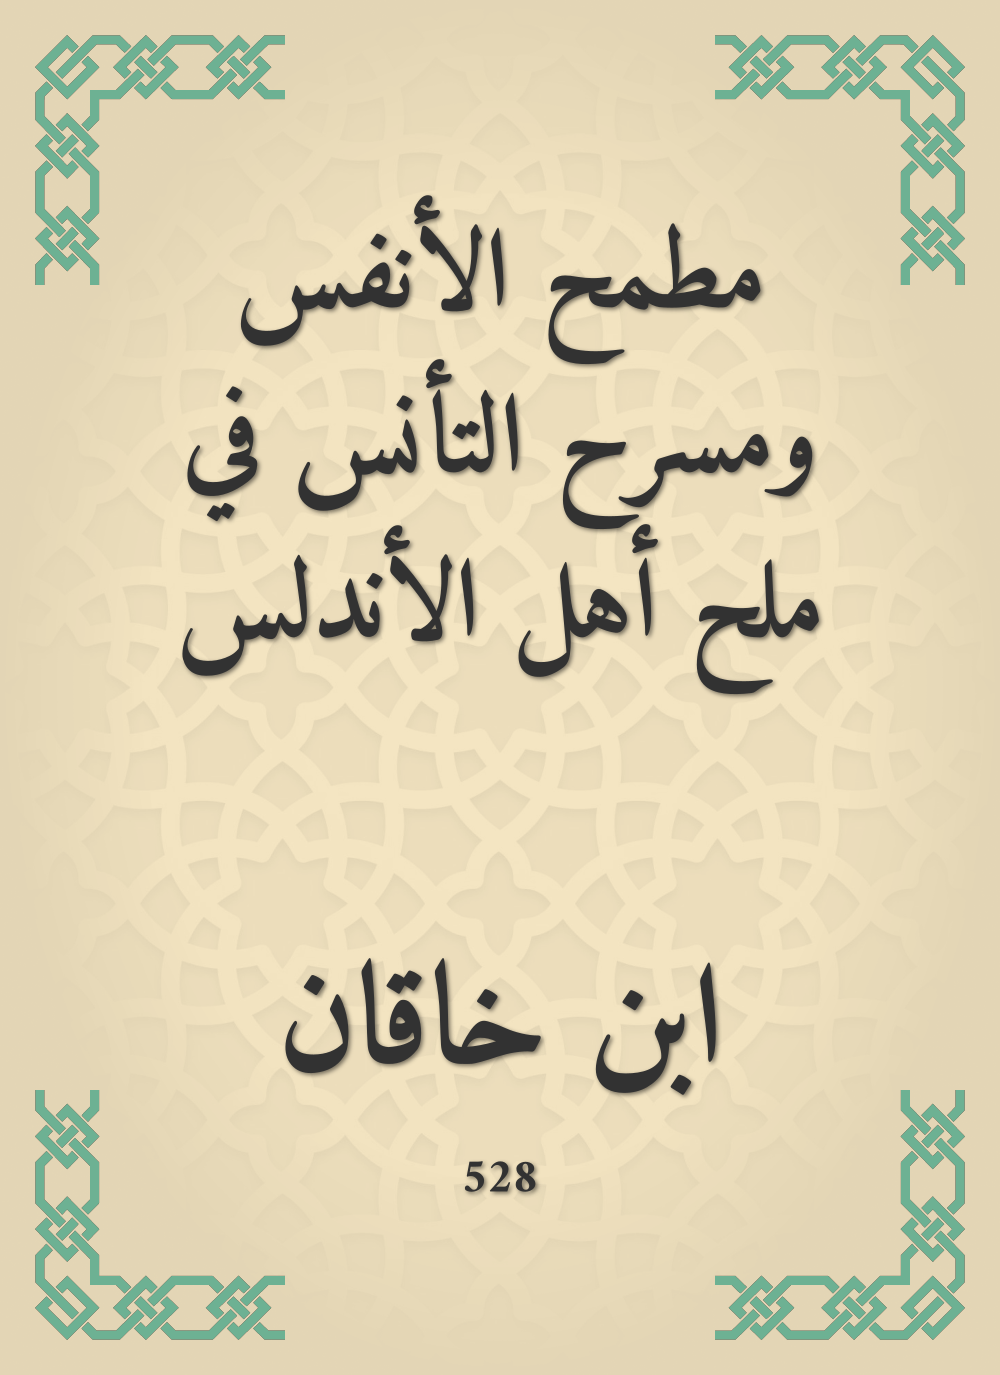 مطمح الأنفس
ومسرح التأنس في
ملح أهل الأندلس
ابن خاقان
528